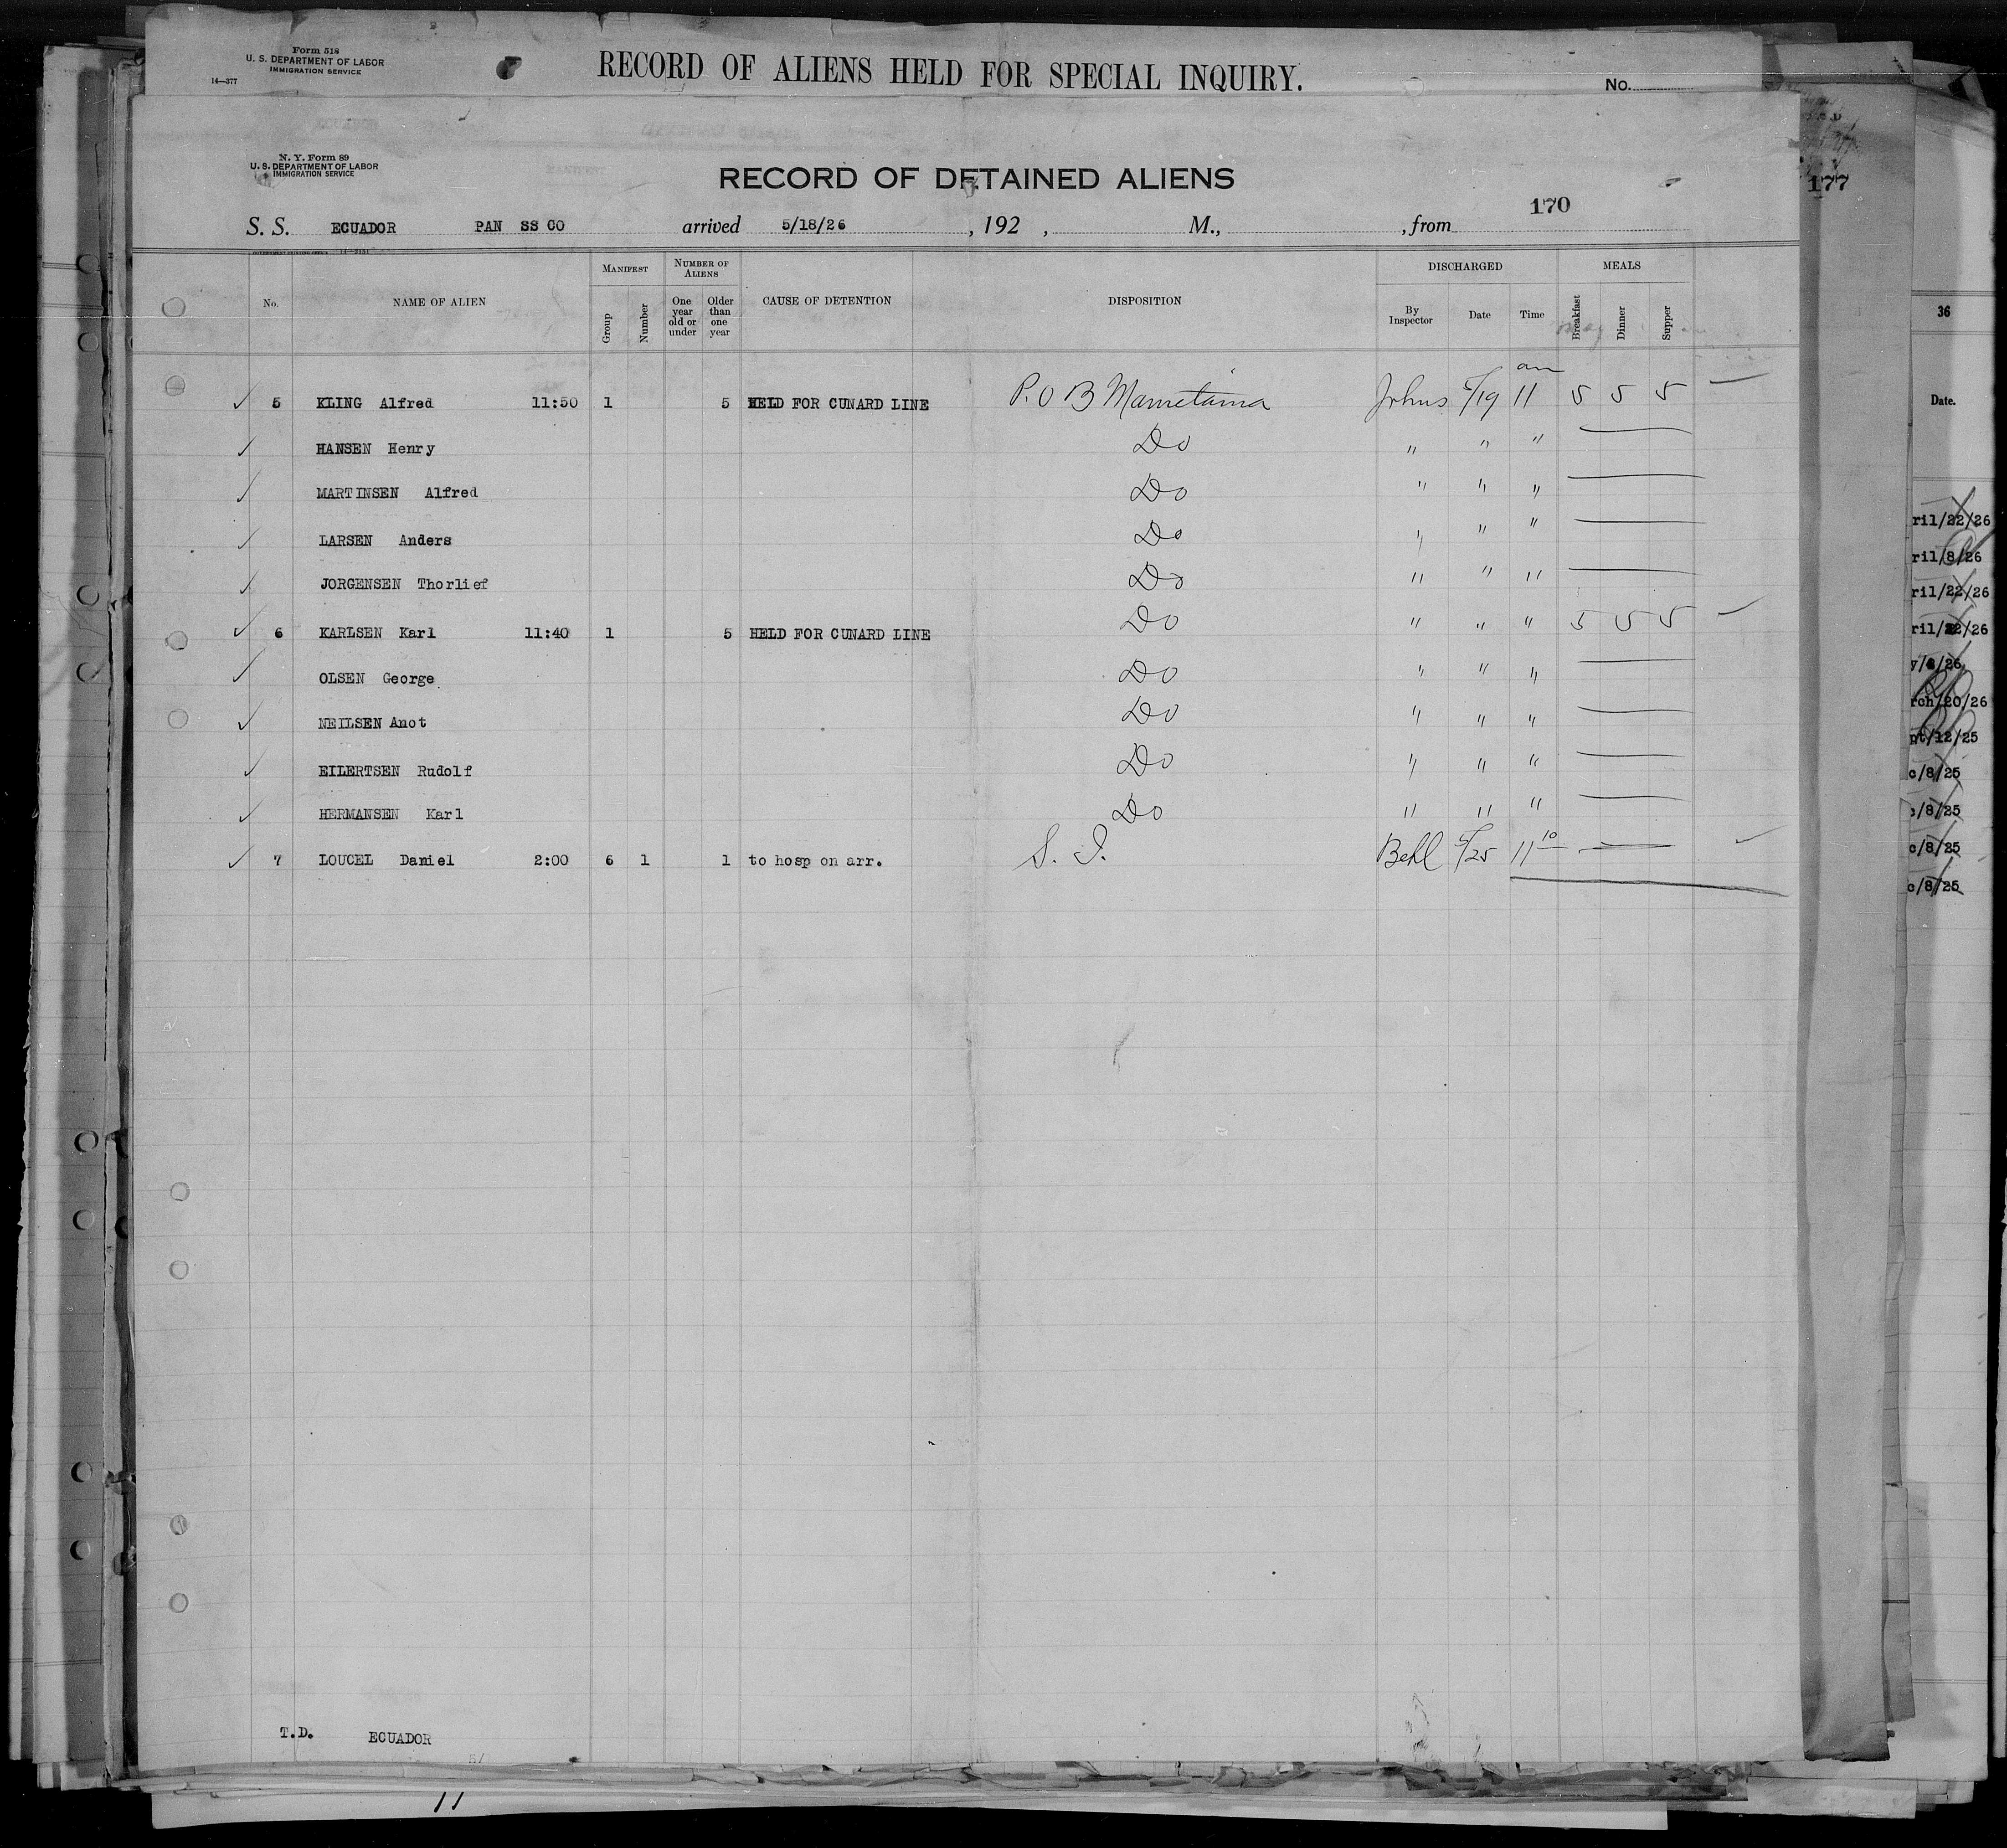 Form 518
U. S. DEPARTMENT OF LABOR
IMMIGRATION SERVICE
14—377
RECORD OF ALIENS HELD FOR SPECIAL INQUIRY.
No.
N. Y. Form 89
U. S. DEPARTMENT OF LABOR
IMMIGRATION SERVICE
RECORD OF DETAINED ALIENS
177
170
S. S. ECUADOR PAN SS CO arrived 5/18/26 , 192 , M., , from
No. NAME OF ALIEN MANIFEST Group Number NUMBER OF ALIENS One year old or under Older than one year CAUSE OF DETENTION DISPOSITION DISCHARGED By Inspector Date Time MEALS Breakfast Dinner Supper
36
Date.
5 KLING Alfred 11:50 1 5 HELD FOR CUNARD LINE P. O B Mauretania Johns 5/19 11 am 5 5 5
HANSEN Henry Do " " "
MARTINSEN Alfred Do " " "
LARSEN Anders Do " " "
JORGENSEN Thorlief Do " " "
6 KARLSEN Karl 11:40 1 5 HELD FOR CUNARD LINE Do " " " 5 5 5
OLSEN George Do " " "
NEILSEN Anot Do " " "
EILERTSEN Rudolf Do " " "
HERMANSEN Karl Do " " "
7 LOUCEL Daniel 2:00 6 1 1 to hosp on arr. S. I. Behl 5/25 11 10
ril/22/26
ril/8/26
ril/22/26
ril/22/26
y/8/26
rch/20/26
pt/12/25
c/8/25
c/8/25
c/8/25
c/8/25
T.D. ECUADOR
5/
11